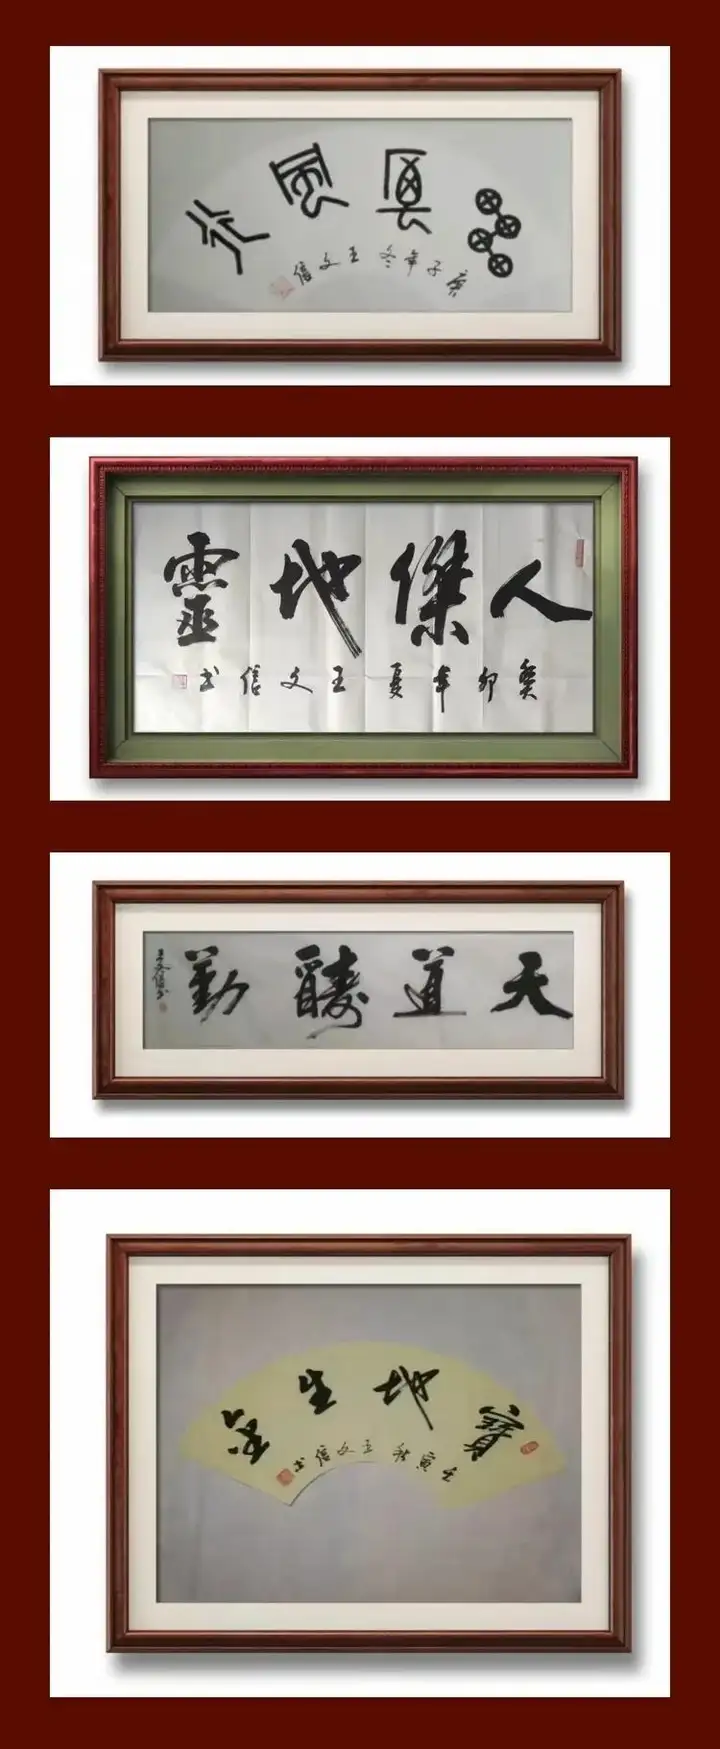 雷厲風行
庚子年冬 王文信
人傑地靈
癸卯年夏 王文信书
天道醻勤
王文信书
寶地生金
壬寅秋 王文信书